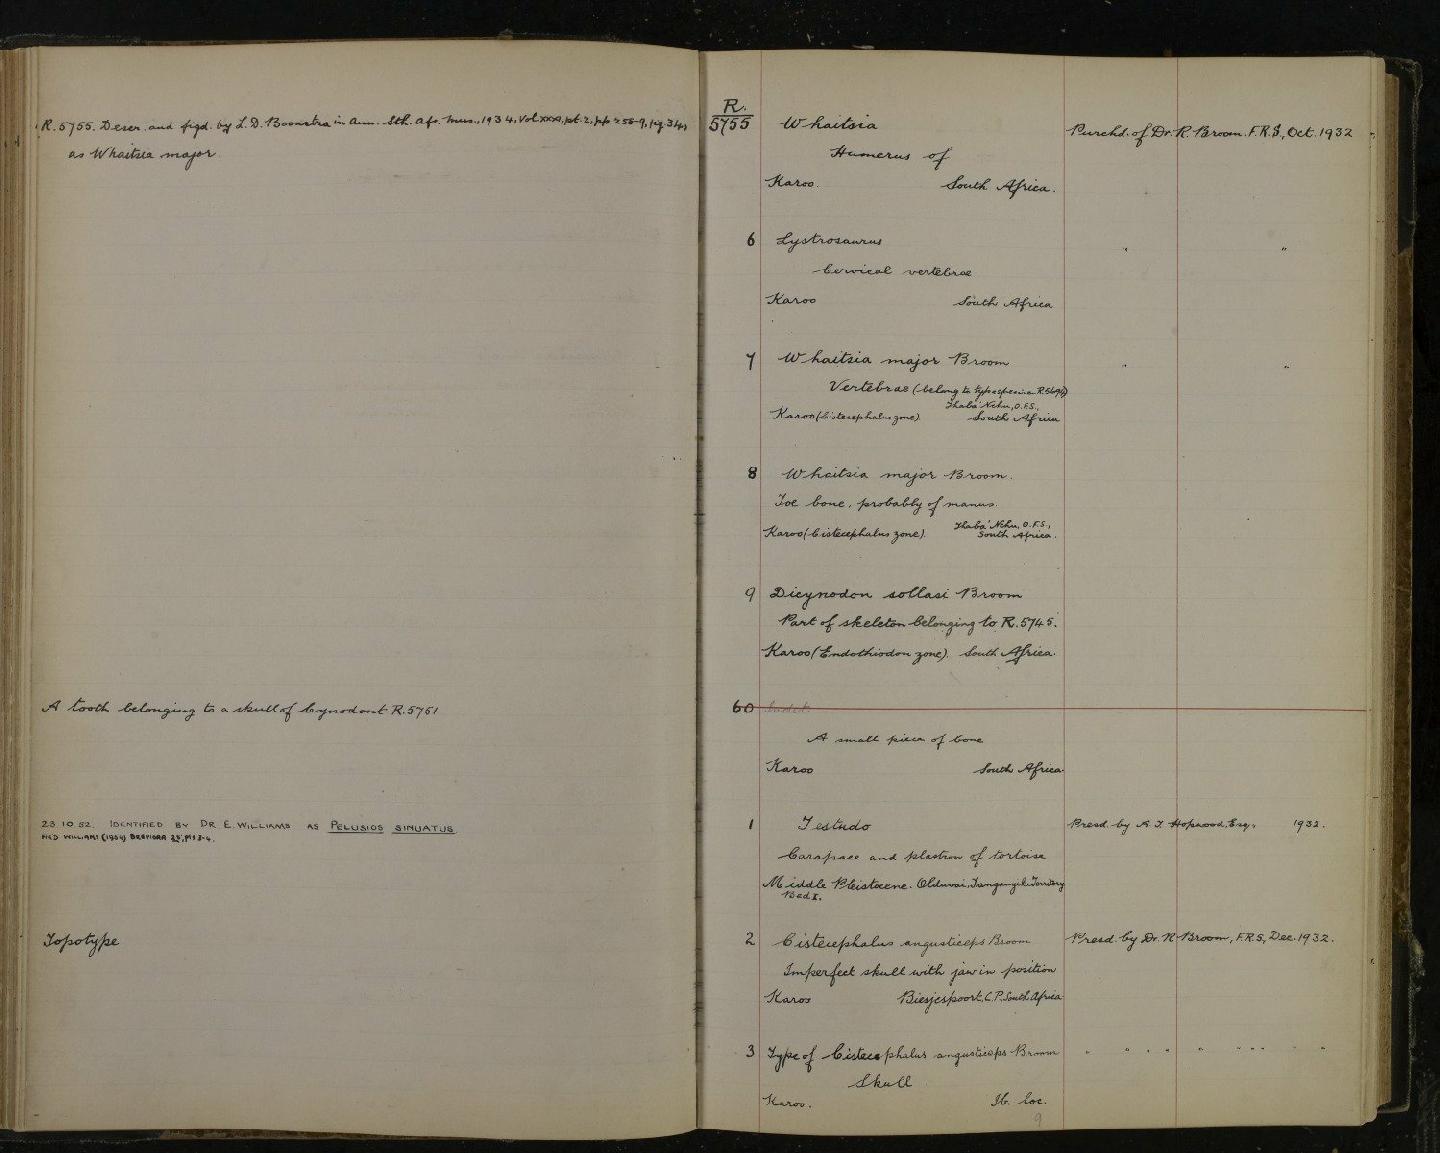 R.5755. Descr. and figd. by L.D. Boonstra in Ann. Sth. Afr. Mus., 1934, Vol XXXI, pt. 2, pp 255-9, fig 34,
as Whaitsia major
A tooth belonging to a skull of Cynodont R.5751
23.10.52. IDENTIFIED BY DR E. WILLIAMS AS PELUSIOS SINUATUS.
FIGD WILLIAMS (1954) BREVIORA 25, pls 3-4.
Topotype
R.
5755 Whaitsia Purchd. of Dr. R. Broom. F.R.S., Oct. 1932
Humerus of
Karoo. South Africa.
6 Lystrosaurus " "
Cervical vertebrae
Karoo South Africa
7 Whaitsia major Broom " "
Vertebrae (belong to type specimen R.5694)
Thaba 'Nchu, O.F.S.,
Karoo (Cistecephalus zone) South Africa
8 Whaitsia major Broom.
Toe bone, probably of manus.
Thaba 'Nchu, O.F.S.,
Karoo (Cistecephalus zone). South Africa.
9 Dicynodon sollasi Broom
Part of skeleton belonging to R.5745.
Karoo (Endothiodon zone). South Africa.
60
A small piece of bone
Karoo South Africa
1 Testudo Presd. by A.T. Hopwood, Esq., 1932.
Carapace and plastron of tortoise
Middle Pleistocene. Olduvai, Tanganyika Territory
Bed I.
2 Cistecephalus angusticeps Broom Presd. by Dr. R. Broom, F.R.S, Dec. 1932.
Imperfect skull with jaw in position
Karoo Biesjespoort, C.P. South Africa
3 Type of Cistecephalus angusticeps Broom " " " " " " " " " "
Skull
Karoo. Ib. loc.
9